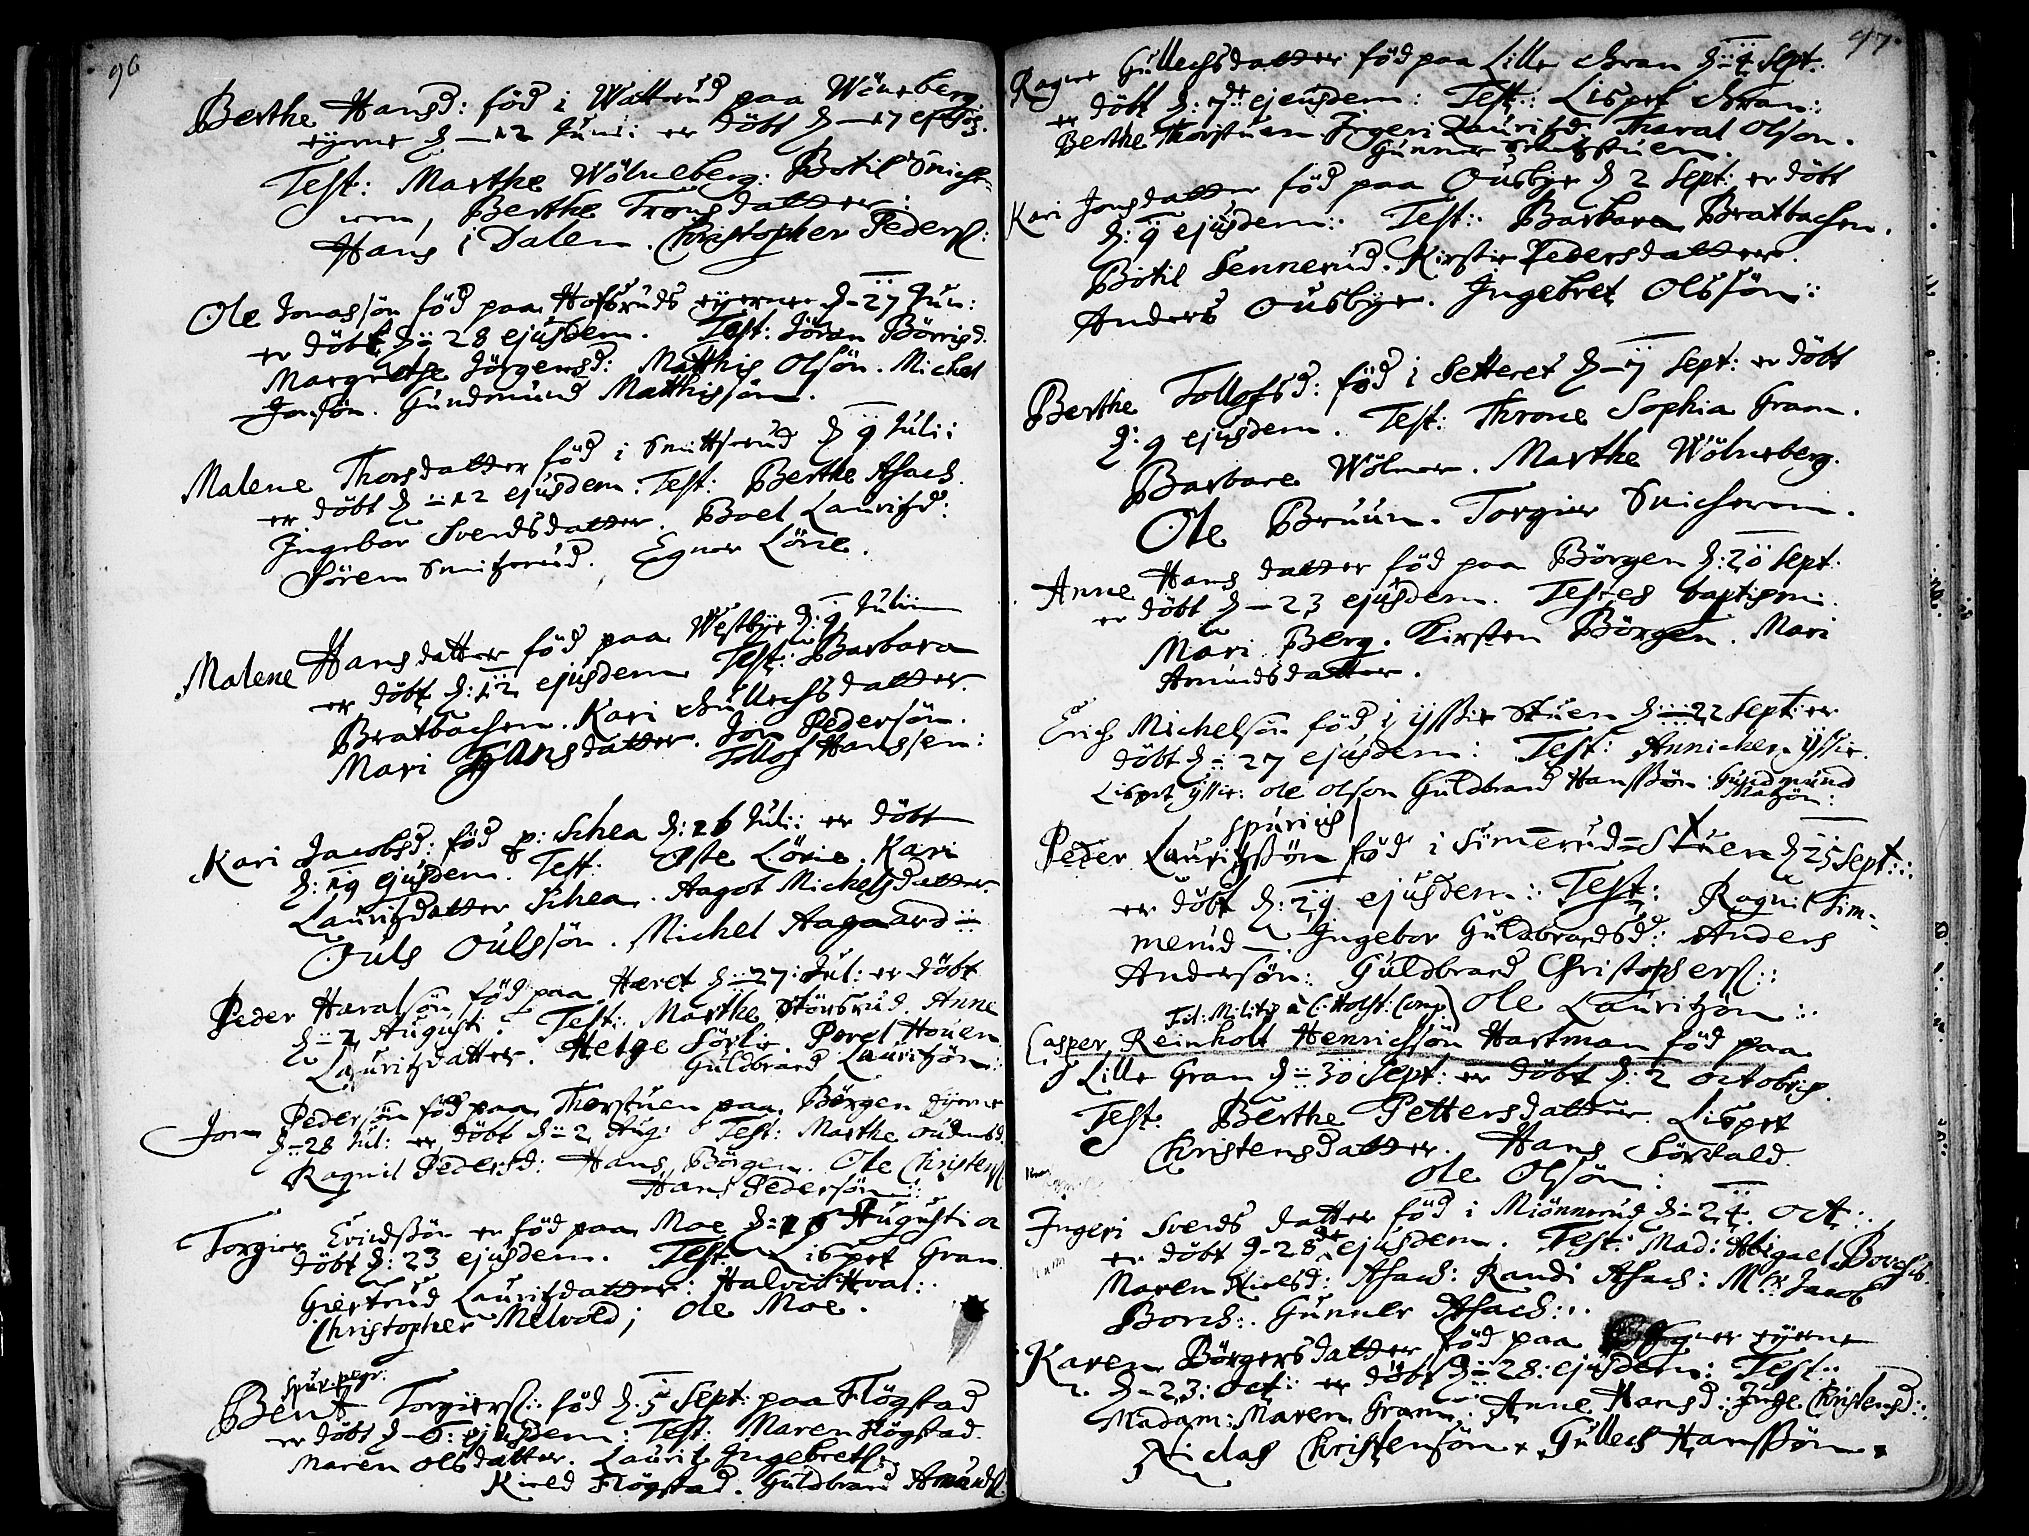 96
Berthe Hansd: föd i Watterud paa Wölneberg
eyerne d — 12 Junii er döbt d — 17 ejusd.
Test: Marthe Wölneberg: Botil Snicke-
ren, Berthe Tronsdatter:
Hans i Dalen. Christopher Peders:
Ole Jonassön föd paa Hofsruds eyerne d — 27 Jun:
er döbt d: 28 ejusdem. Test: Jöran Börrisd.
Margrethe Jörgensd: Matthis Olsön. Michel
Jonsön. Gundmund Matthissön.
Malene Thorsdatter föd i Smittsrud d 9 Julii
er döbt d: 12 ejusdem. Test: Berthe Asach.
Ingebor Svendsdatter. Boel Lauritzd:
Sören Smitzrud. Egner Lörie.
Malene Hansdatter föd paa Westbye d: 9 Julii
er döbt d: 12 ejusdem Test: Barbara
Bratbachen. Kari Gullechsdatter.
Mari Hansdatter. Jon Pedersön.
Tollof Hanssen:
Kari Jacobsd: föd p: Schea d: 16 Julii er döbt
d: 19 ejusdem. Test: Öste Lörie. Kari
Lauritzdatter Schea. Aagot Michelsdatter.
Ouls Oulssön. Michel Aagaard:
Peder Haralsön föd paa Haret d: 27: Jul: er döbt
d: 2 Augusti. Test: Marthe Störsrud. Anne
Lauritzdatter. Helge Sörlie. Povel Houen
Guldbrand Lauritzön:
Jon Pedersön föd paa Thorstuen paa Börgen eyerne
d: 28 Jul: er döbt d: 2 Aug: Test: Marthe Oudensd.
Ragnil Pedersd: Hans Börgen. Ole Christens
Hans Pedersön:
Torgier Evindssön er föd paa Moe d: 16 Augusti er
döbt d: 23 ejusdem. Test. Lispet Gran.
Giertrud Lauritzdatter: Halvor Hval:
Christopher Melvold; Ole Moe.
spur:
Bent Torgiers: föd d: 5 Sept: paa Flögstad
er döbt d — 6: ejusdem: Test: Maren Flögstad.
Maren Olsdatter. Lauritz Ingebrets
Kield Flögstad. Guldbrand Amunds
97
Ragne Gullechsdatter föd paa Lille Gran d: 4 Sept:
er döbt d: 7de ejusdem: Test: Lispet Gran:
Berthe Thorstuen Ingeri Lauritzd. Tharal Olson.
Gunner
Kari Jonsdatter föd paa Ousbye d 2 Sept: er döbt
d: 9 ejusdem: Test: Barbara Bratbachen.
Botil Sennerud. Kirstie Pedersdatter.
Anders Ousbye. Ingebret Olssön:
Berthe Tollofsd: föd i Setteret d — 7 Sept: er döbt
d: 9 ejusdem. Test: Throne Sophia Gram.
Barbare Wölner. Marthe Wölneberg.
Ole Bruun. Torgier Snickeren.
Anne Hansdatter föd paa Börgen d: 20 Sept:
er döbt d — 23 ejusdem. Testes baptismi.
Mari Berg. Kirsten Börgen. Mari
Amundsdatter.
Erich Michelsön föd i ÿssie Stuen d: 22 Sept: er
döbt d: 27 ejusdem: Test: Annichen ÿssie.
Lispet ÿssie: Ole Olson Guldbrand Hanssön: Gundmund
Matzön:
spurius
Peder Lauritzsön föd i Simerud-Stuen d 25 Sept:
er döbt d: 29 ejusdem: Test: Ragnil Sim-
merud — Ingebor Guldbrandsd: Anders
Andersön: Guldbrand Christophers:
Ole Lauritzön:
Fil: Milit: Holst: Comp:
Casper Reinholt Henricssön Hartman föd paa
Lille Gram d: 30 Sept: er döbt d: 2 Octobris.
Test: Berthe Pettersdatter. Lispet
Christensdatter. Hans Sörvald.
Ole Olsön:
Ingeri Svendsdatter föd i Miönnerud d: 24. Oct:
er döbt d — 28de ejusdem. Test: Mad: Abigael Borchs.
Maren Nielsd: Asach: Randi Asach: Mr. Jacob
Borch: Gunner Asach:
Karen Börgersdatter föd paa Egner eyerne
d — 23: Oct: er döbt d: 28: ejusdem: Test:
Madam: Maren Gram: Anne Hansd: Inge Christensd:
Niclas Christensön. Gullech Hanssön.